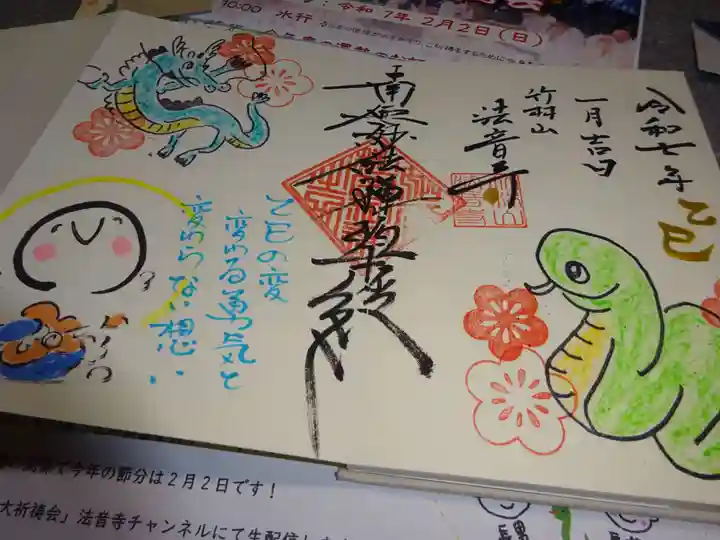 10:00 水行
令和7年2月2日(日)
令和七年
一月吉日
乙巳
法音寺
南無妙法蓮華経
乙巳の変
変わる勇気と
変わらない想い
で今年の節分は2月2日です!
大祈祷会」法音寺チャンネルにて生配信し
長男